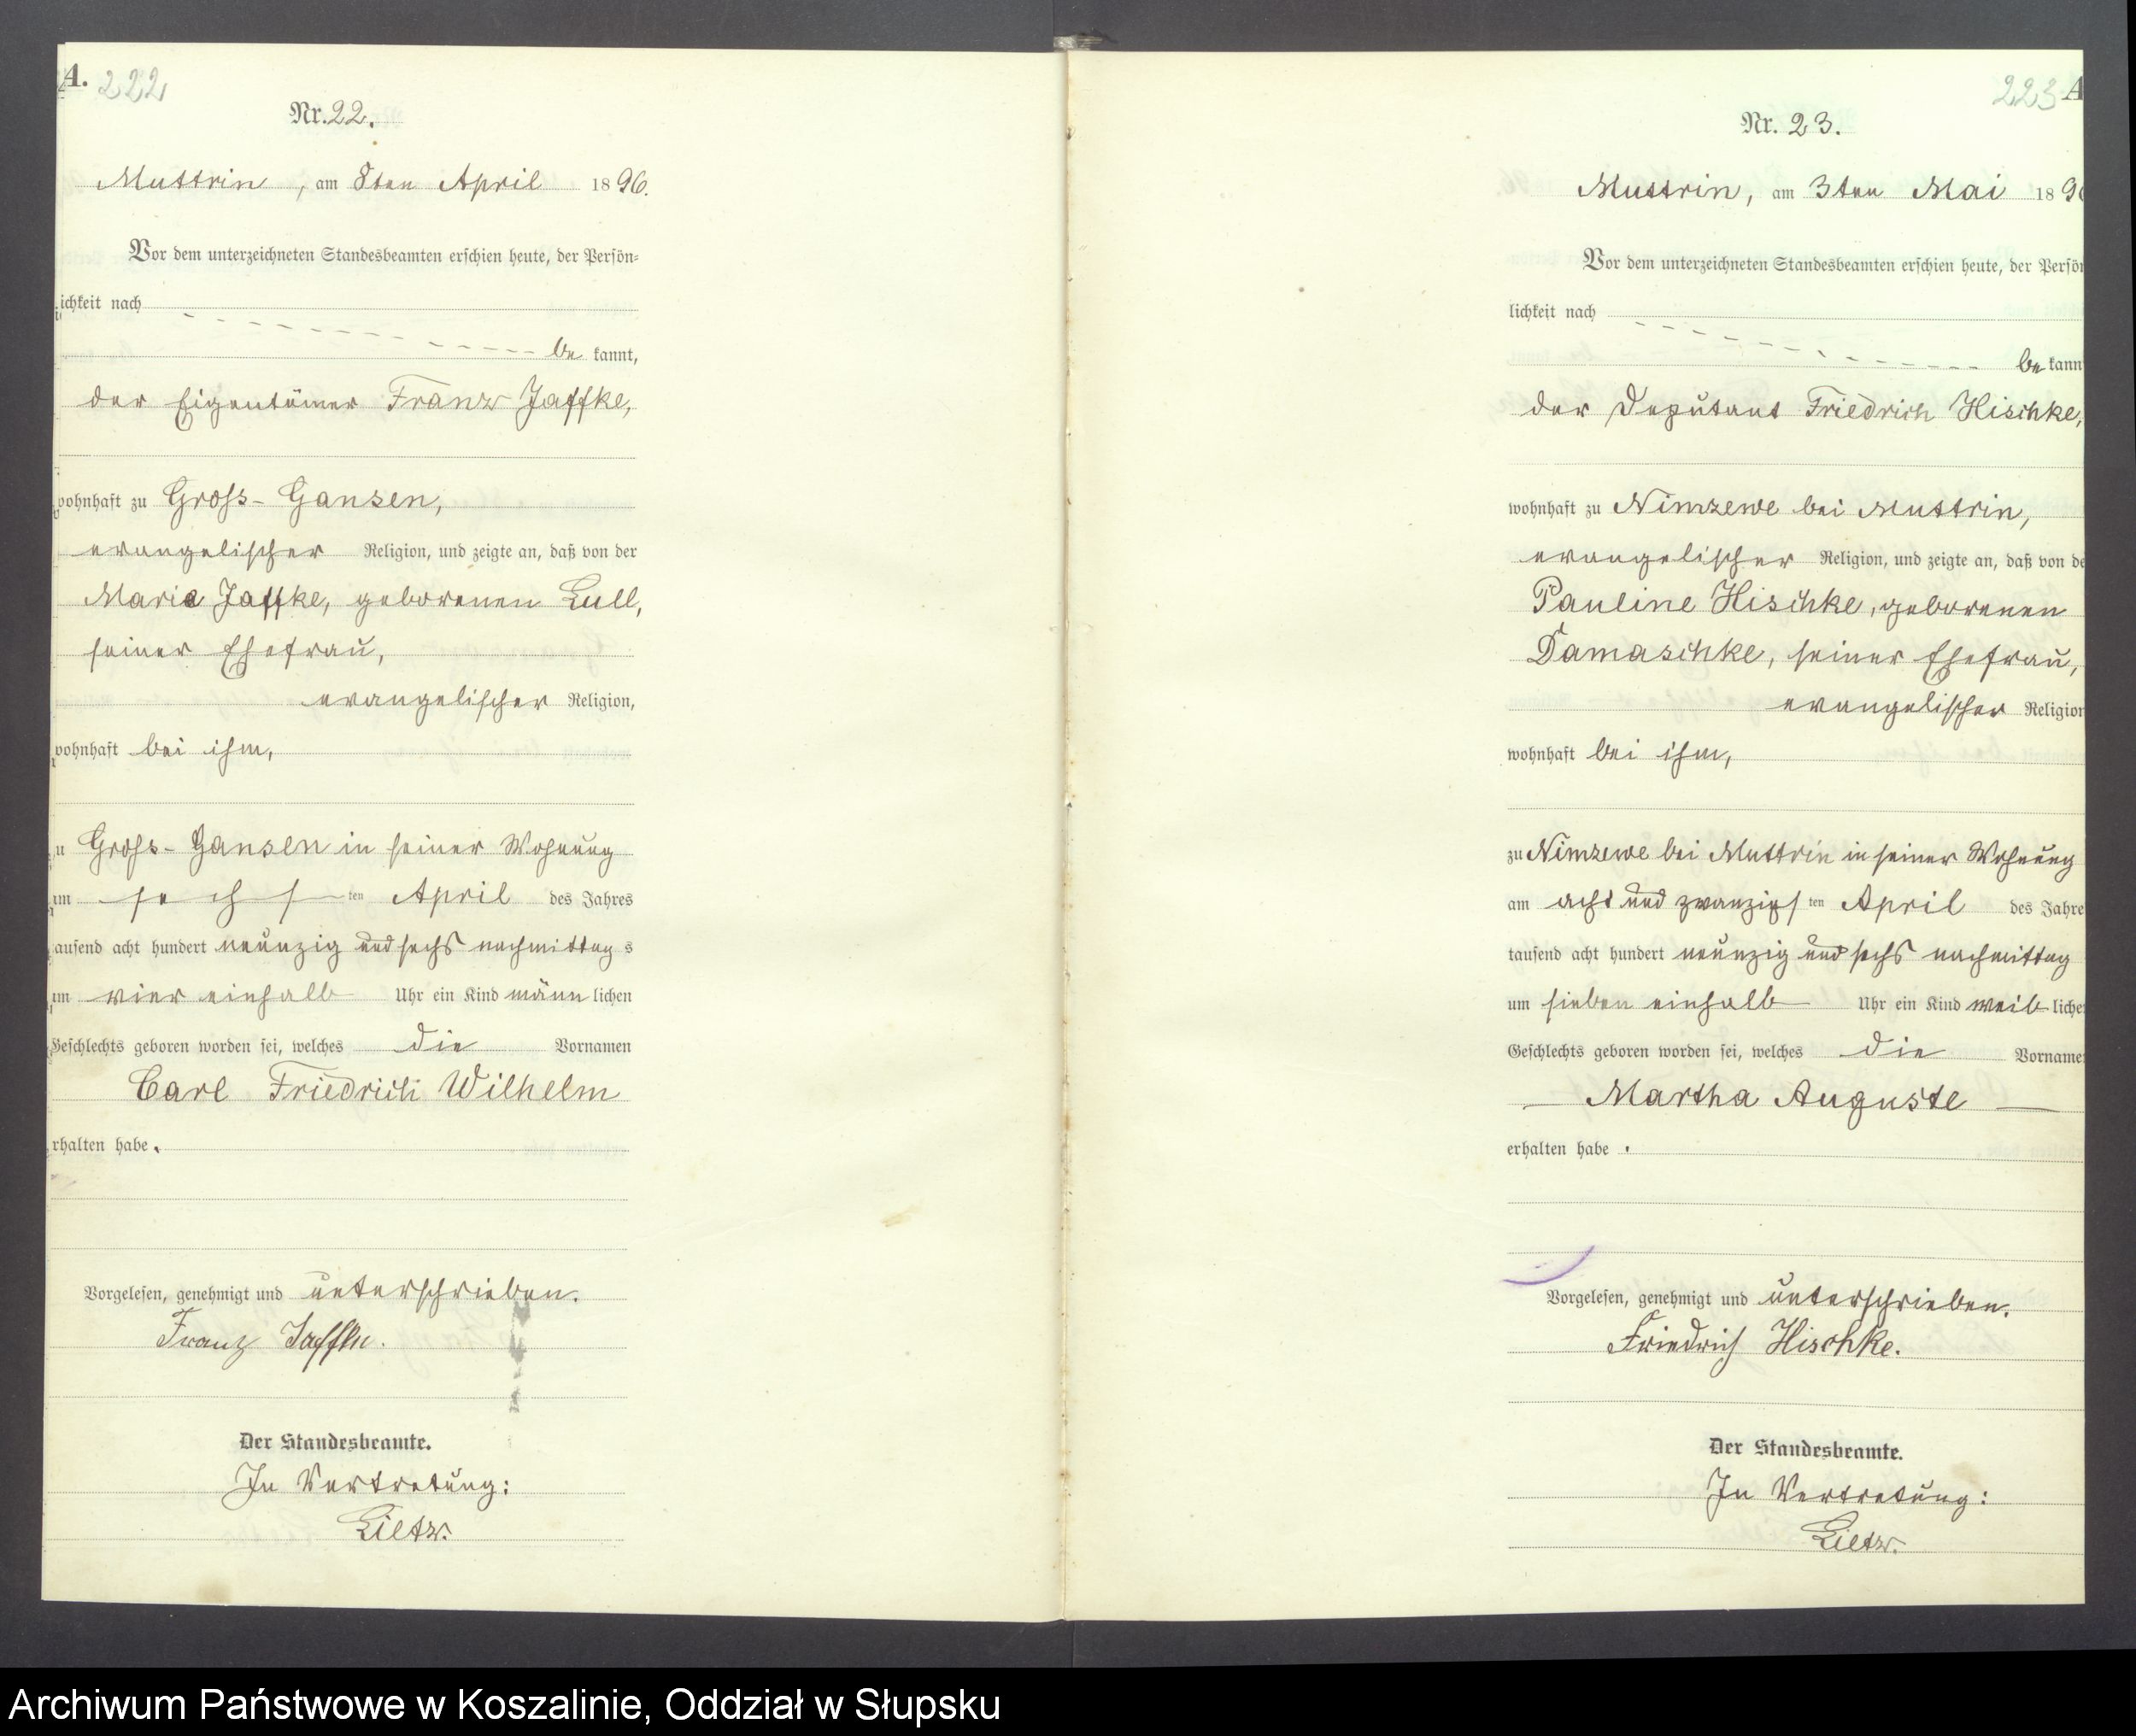 A. 222
Nr. 22.
Muttrin, am 8ten April 1896.
Vor dem unterzeichneten Standesbeamten erschien heute, der Persön-
lichkeit nach
be kannt,
der Eigentümer Franz Jaffke,
wohnhaft zu Gross-Gansen,
evangelischer Religion, und zeigte an, daß von der
Marie Jaffke, geborenen Lull,
seiner Ehefrau,
evangelischer Religion,
wohnhaft bei ihm,
zu Gross-Gansen in seiner Wohnung
am sechsten April des Jahres
tausend acht hundert neunzig und sechs nachmittags
um vier einhalb Uhr ein Kind männlichen
Geschlechts geboren worden sei, welches die Vornamen
Carl Friedrich Wilhelm
erhalten habe.
Vorgelesen, genehmigt und unterschrieben.
Franz Jaffke.
Der Standesbeamte.
In Vertretung:
Lietz.
223 A
Nr. 23.
Muttrin, am 3ten Mai 189
Vor dem unterzeichneten Standesbeamten erschien heute, der Persön
lichkeit nach
be kann
der Deputant Friedrich Hischke,
wohnhaft zu Nimzewe bei Muttrin,
evangelischer Religion, und zeigte an, daß von de
Pauline Hischke, geborenen
Damaschke, seiner Ehefrau,
evangelischer Religion
wohnhaft bei ihm,
zu Nimzewe bei Muttrin in seiner Wohnung
am acht und zwanzigsten April des Jahre
tausend acht hundert neunzig und sechs nachmittag
um sieben einhalb Uhr ein Kind weibliche
Geschlechts geboren worden sei, welches die Vorname
Martha Auguste
erhalten habe.
Vorgelesen, genehmigt und unterschrieben.
Friedrich Hischke.
Der Standesbeamte.
In Vertretung:
Lietz.
Archiwum Państwowe w Koszalinie, Oddział w Słupsku